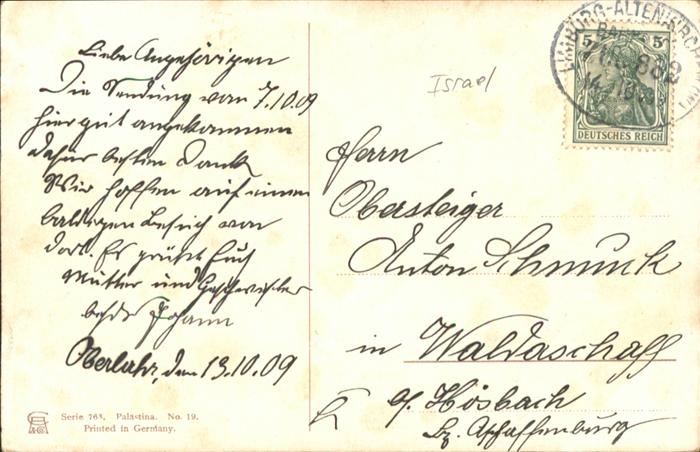 Liebe Angehörigen
Die Sendung vom 7.10.09
hier gut angekommen
daher besten Dank
Wir hoffen auf einen
baldigen Besuch von
dort. Es grüßt Euch
Mutter und Geschwister
Johann
Oberlahr, den 13.10.09
Serie 763. Palästina. No. 19.
Printed in Germany.
Israel
LIMBURG-ALTENKIRCHEN
5 5
DEUTSCHES REICH
Herrn
Obersteiger
Anton Schmuck
in Waldaschaff
Hösbach
Bz. Aschaffenburg